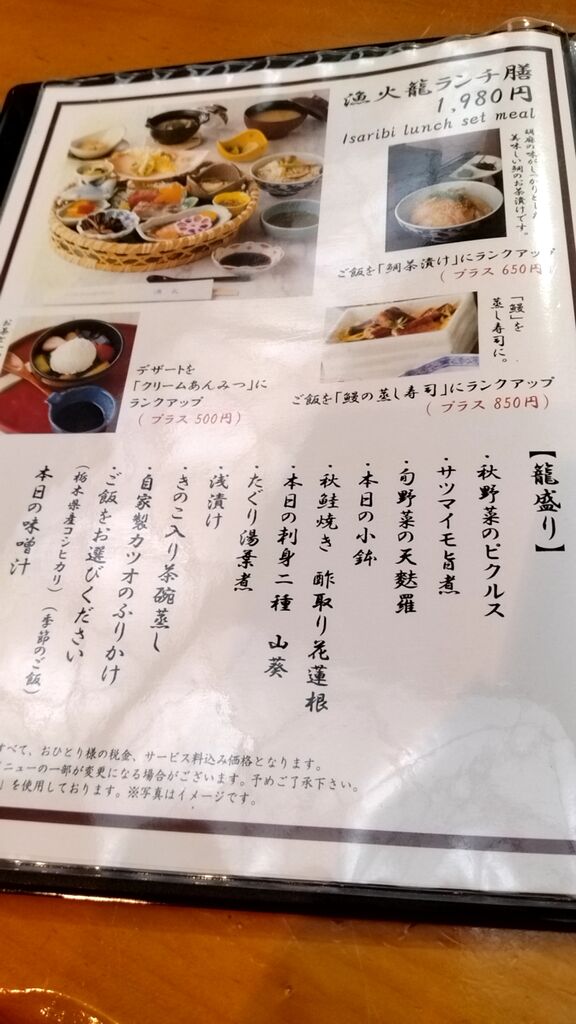 漁火籠ランチ膳
1,980円
Isaribi lunch set meal
胡麻の味がしっかりとした
美味しい鯛のお茶漬けです。
ご飯を「鯛茶漬け」にランクアップ
(プラス 650円)
「鰻」を
蒸し寿司に。
ご飯を「鰻の蒸し寿司」にランクアップ
(プラス 850円)
デザートを
「クリームあんみつ」に
ランクアップ
(プラス 500円)
【籠盛り】
・秋野菜のピクルス
・サツマイモ旨煮
・旬野菜の天麩羅
・本日の小鉢
・秋鮭焼き 酢取り花蓮根
・本日の刺身二種 山葵
・たぐり湯葉煮
・浅漬け
・きのこ入り茶碗蒸し
・自家製カツオのふりかけ
・ご飯をお選びください
(栃木県産コシヒカリ)(季節のご飯)
本日の味噌汁
すべて、おひとり様の税金、サービス料込み価格となります。
メニューの一部が変更になる場合がございます。予めご了承下さい。
」を使用しております。※写真はイメージです。